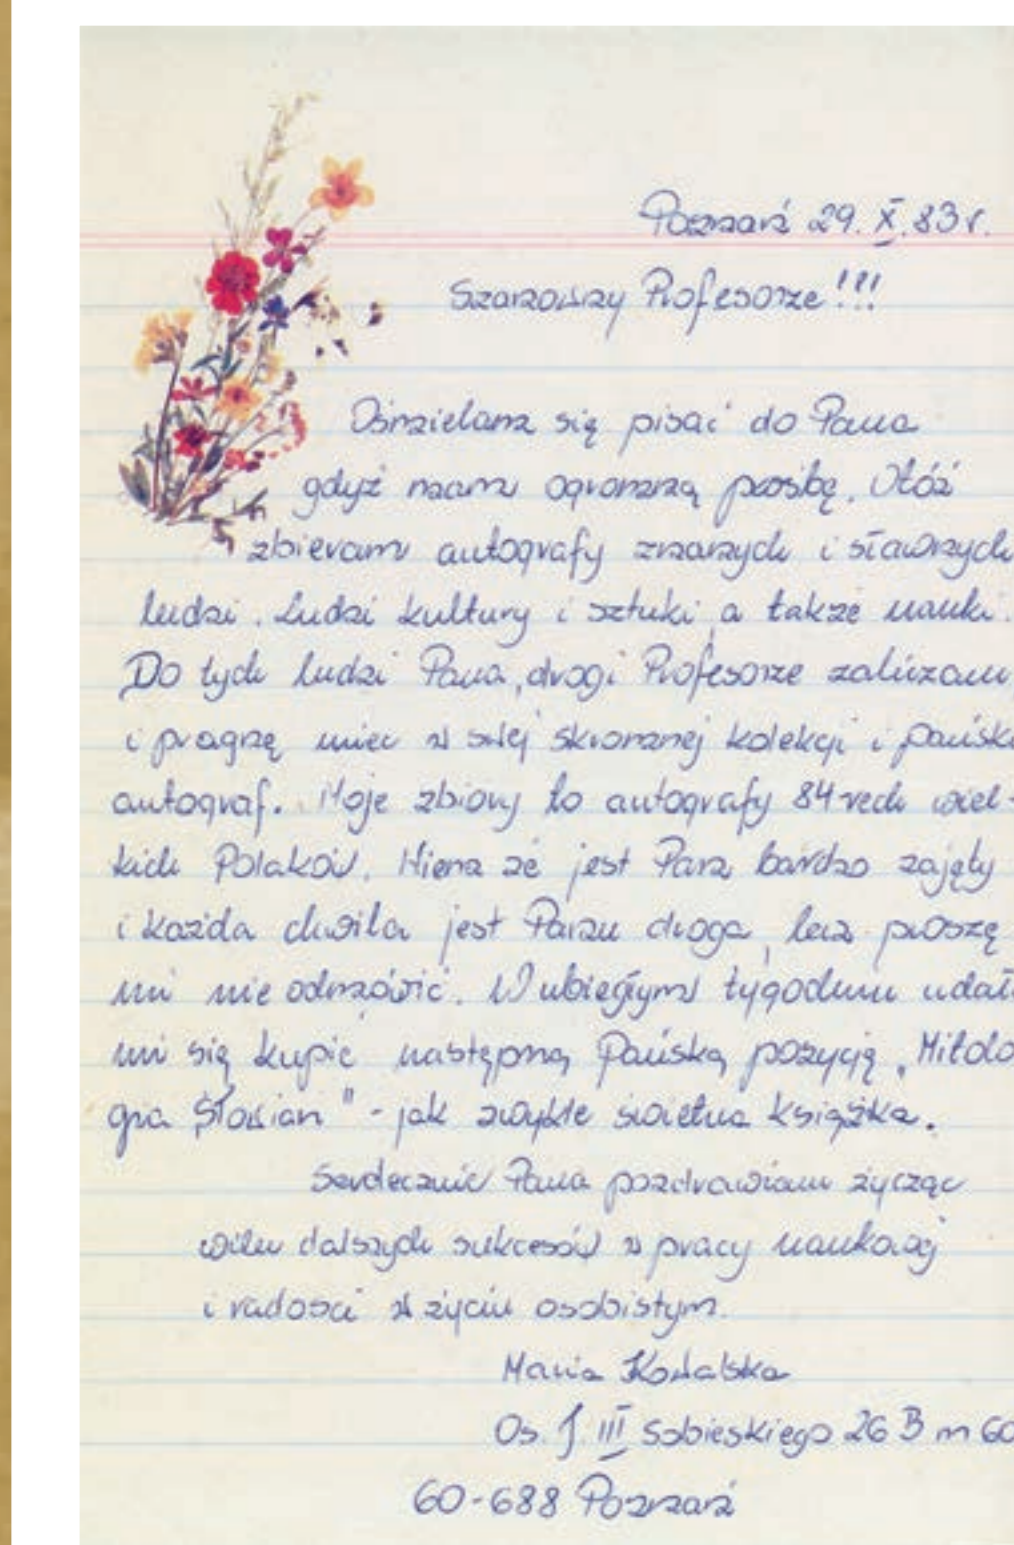 Poznań 29. X. 83 r.
Szanowny Profesorze!!!
Ośmielam się pisać do Pana
gdyż mam ogromną prośbę. Otóż
zbieram autografy znanych i sławnych
ludzi. Ludzi kultury i sztuki, a także nauki.
Do tych ludzi Pana, drogi Profesorze zaliczam
i pragnę mieć w swej skromnej kolekcji i pański
autograf. Moje zbiory to autografy 84-rech wiel-
kich Polaków. Wiem że jest Pan bardzo zajęty
i każda chwila jest Panu droga, lecz proszę
mi nie odmówić. W ubiegłym tygodniu udał
mi się kupić następną Pańską pozycję „Mitolo
gia Słowian" - jak zwykle świetna książka.
Serdecznie Pana pozdrawiam życząc
wielu dalszych sukcesów w pracy naukowej
i radości w życiu osobistym.
Maria Kowalska
Os. J. III Sobieskiego 26 B m 60
60-688 Poznań